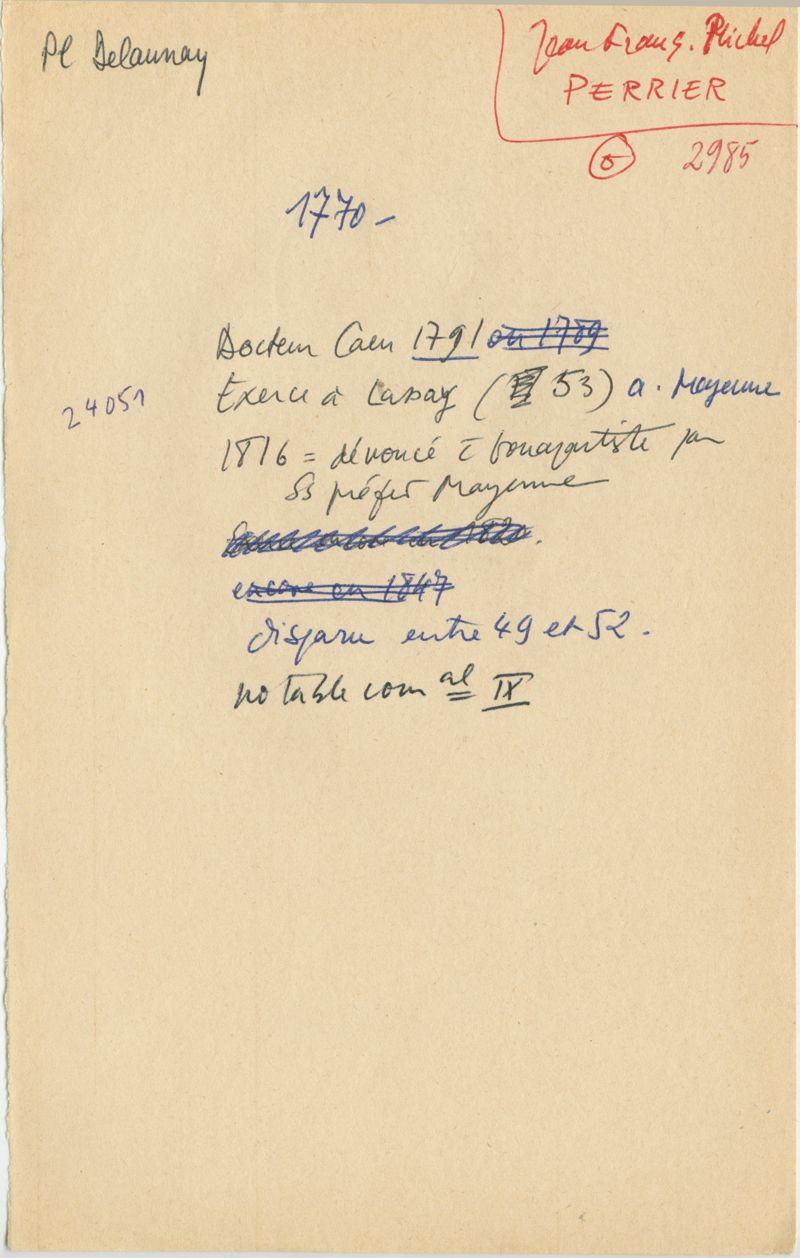 Pl Delaunay
Jean Franç. Michel
PERRIER
2985
1770 -
Docteur Caen 1791 ou 1789
Exerce à Lassay ( 53) a. Mayenne
24051
1816 = dénoncé c̄ bonapartiste par
Ss préfet Mayenne
encore en 1847
disparu entre 49 et 52.
notable com al IX